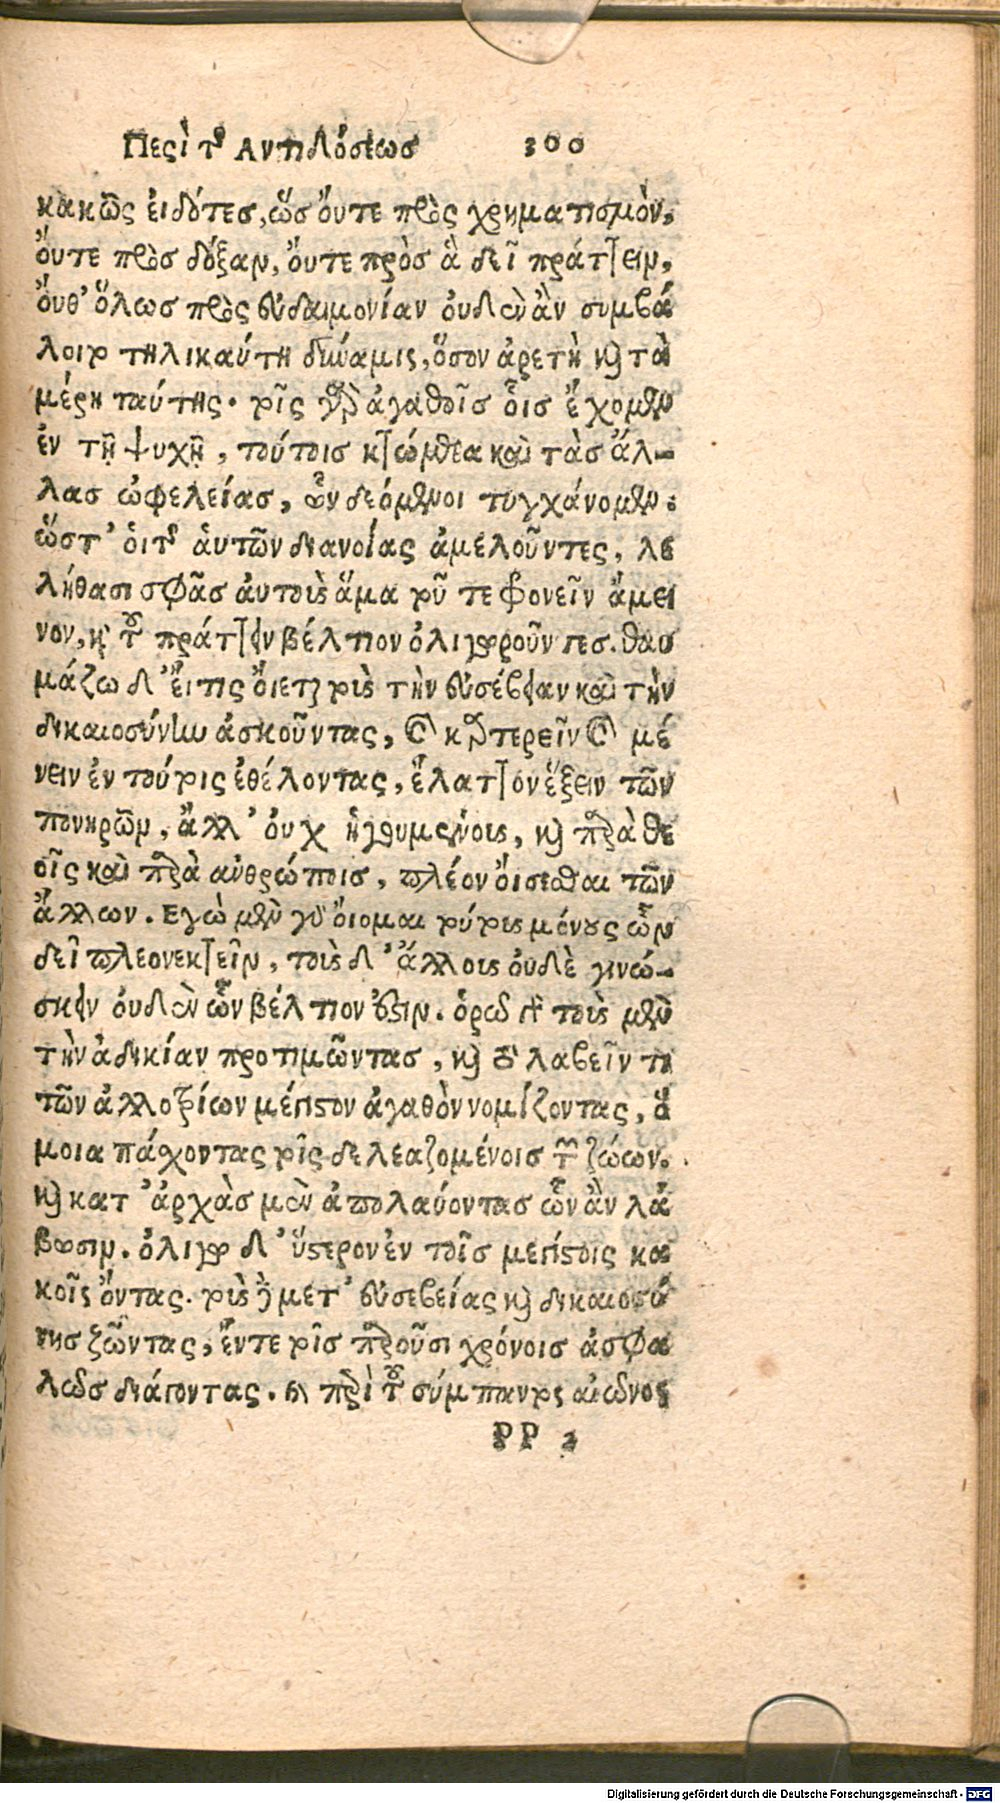 Περὶ τῆς Αντιδόσεως 300
κακῶς ἐιδότες, ὥς ὄυτε πρὸς χρηματισμὸν,
ὄυτε πρὸς δόξαν, ὄυτε πρὸς ἃ δεῖ πράττειν,
ὄυθ' ὅλως πρὸς ἐυδαιμονίαν ὀυδὲν ἂν συμβά
λοιτο τηλικαύτη δύναμις, ὅσον ἀρετὴ καὶ τὰ
μέρη ταύτης. τοῖς γὰρ ἀγαθοῖς ὅις ἔχομεν
ἐν τῇ ψυχῇ, τούτοις κτώμεθα καὶ τὰς ἄλ-
λας ὠφελείας, ὧν δεόμενοι τυγχάνομεν:
ὥστ' ὁι τῆς ἁυτῶν διανοίας ἀμελοῦντες, λε
λήθασι σφᾶς ἀυτοὺς ἅμα τοῦ τε φρονεῖν ἄμει
νον, καὶ τοῦ πράττειν βέλτιον ὀλιγωροῦντες. θαυ
μάζω δ' ἔιτις ὄιεται τοὺς τὴν ἐυσέβειαν καὶ τὴν
δικαιοσύνην ἀσκοῦντας, καὶ καρτερεῖν καὶ μέ
νειν ἐν τούτοις ἐθέλοντας, ἔλαττον ἕξειν τῶν
πονηρῶν, ἀλλ' ὀυχ ἡγουμένους, καὶ παρὰ θε
οῖς καὶ παρὰ ανθρώποις, πλέον ὄισεσθαι τῶν
ἄλλων. Εγὼ μὲν γὰρ ὄιομαι τούτους μόνους ὧν
δεῖ πλεονεκτεῖν, τοὺς δ' ἄλλους ὀυδὲ γινώ-
σκειν ὀυδὲν ὧν βέλτιον ἐστιν. ὁρῶ γὰρ τοὺς μὲν
τὴν ἀδικίαν προτιμῶντας, καὶ τὸ λαβεῖν τι
τῶν ἀλλοτρίων μέγιστον ἀγαθὸν νομίζοντας, ὅ
μοια πάσχοντας τοῖς δελεαζομένοις τῶν ζώων.
καὶ κατ' ἀρχὰς μὲν ἀπολαύοντας ὧν ἂν λά
βωσιν. ὀλίγῳ δ' ὕστερον ἐν τοῖς μεγίστοις κα
κοῖς ὄντας. τοὺς δὲ μετ' ἐυσεβείας καὶ δικαιοσύ
νης ζῶντας, ἔν τε τοῖς παροῦσι χρόνοις ἀσφα
λῶς διάγοντας. καὶ περὶ τοῦ σύμπαντος αἰῶνος
PP 2
Digitalisierung gefördert durch die Deutsche Forschungsgemeinschaft - DFG